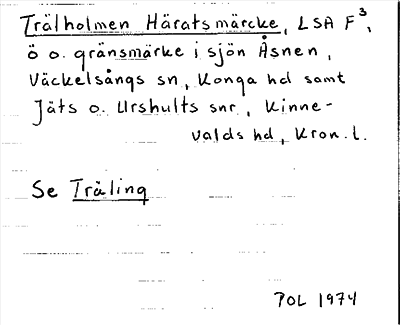 Trälholmen Härats märcke, LSA F³,
ö o. gränsmärke i sjön Åsnen,
Väckelsångs sn, Konga hd samt
Jäts o. Urshults snr, Kinne-
valds hd, Kron. l.
Se Träling
POL 1974